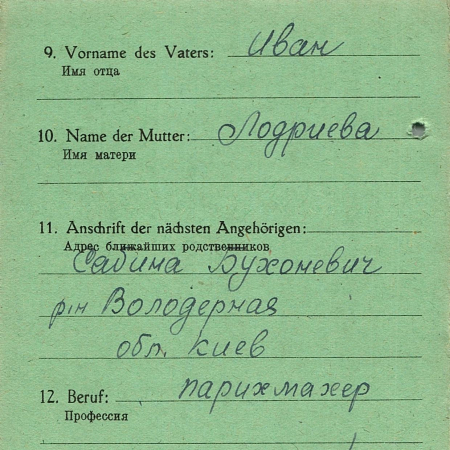 9. Vorname des Vaters: Иван
Имя отца
10. Name der Mutter: Лодриева
Имя матери
11. Anschrift der nächsten Angehörigen:
Адрес ближайших родственников
Сабина Бухоневич
р-н Володерная
обл. Киев
12. Beruf: парихмахер
Профессия